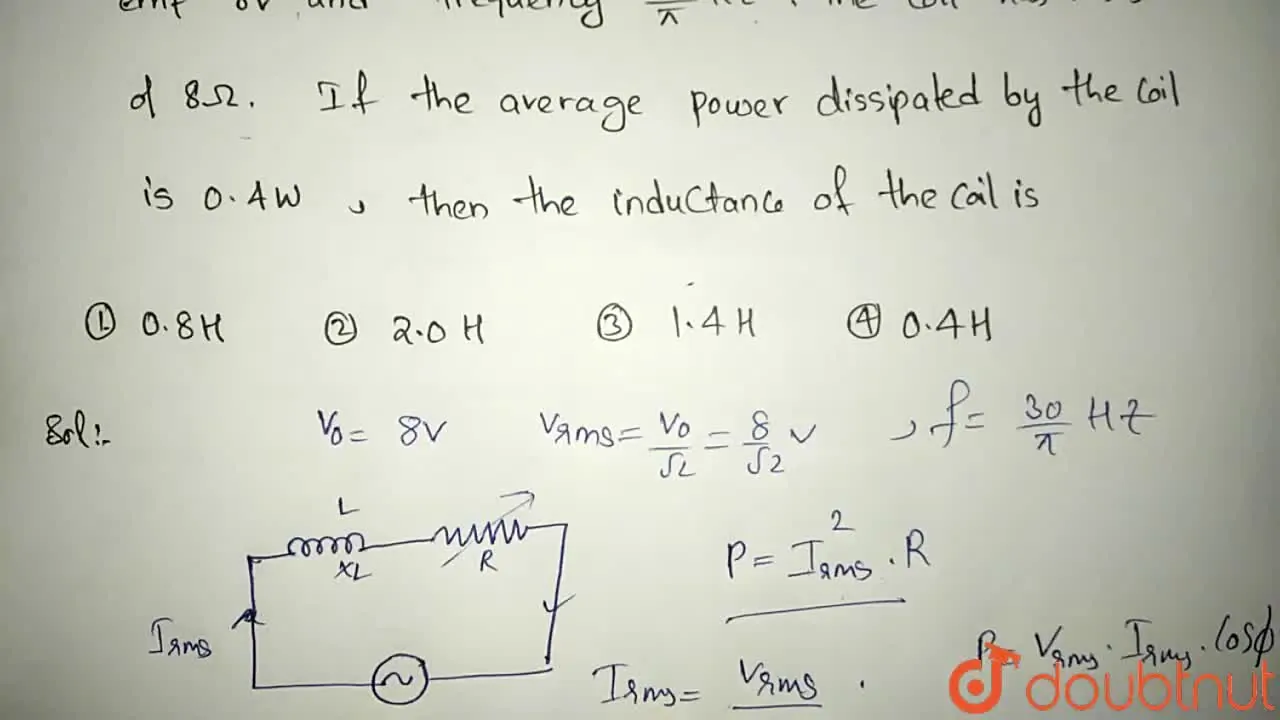 emf 8V and frequency
π
of 8Ω. If the average power dissipated by the coil
is 0.4W, then the inductance of the coil is
① 0.8H ② 2.0 H ③ 1.4 H ④ 0.4H
Sol:- V₀ = 8V Vrms = V₀/√2 = 8/√2 V , f = 30/π HZ
L
XL R
P = I²rms . R
Irms
P = Vrms . Irms . Cosϕ
Irms = Vrms .
doubtnut